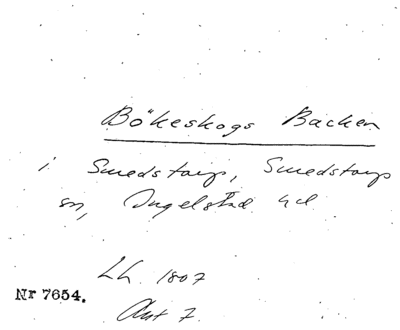 Bökeskogs Backen
i Smedstorp, Smedstorps
sn, Ingelstad hd
Lh. 1807
Nr 7654.
Akt 7.